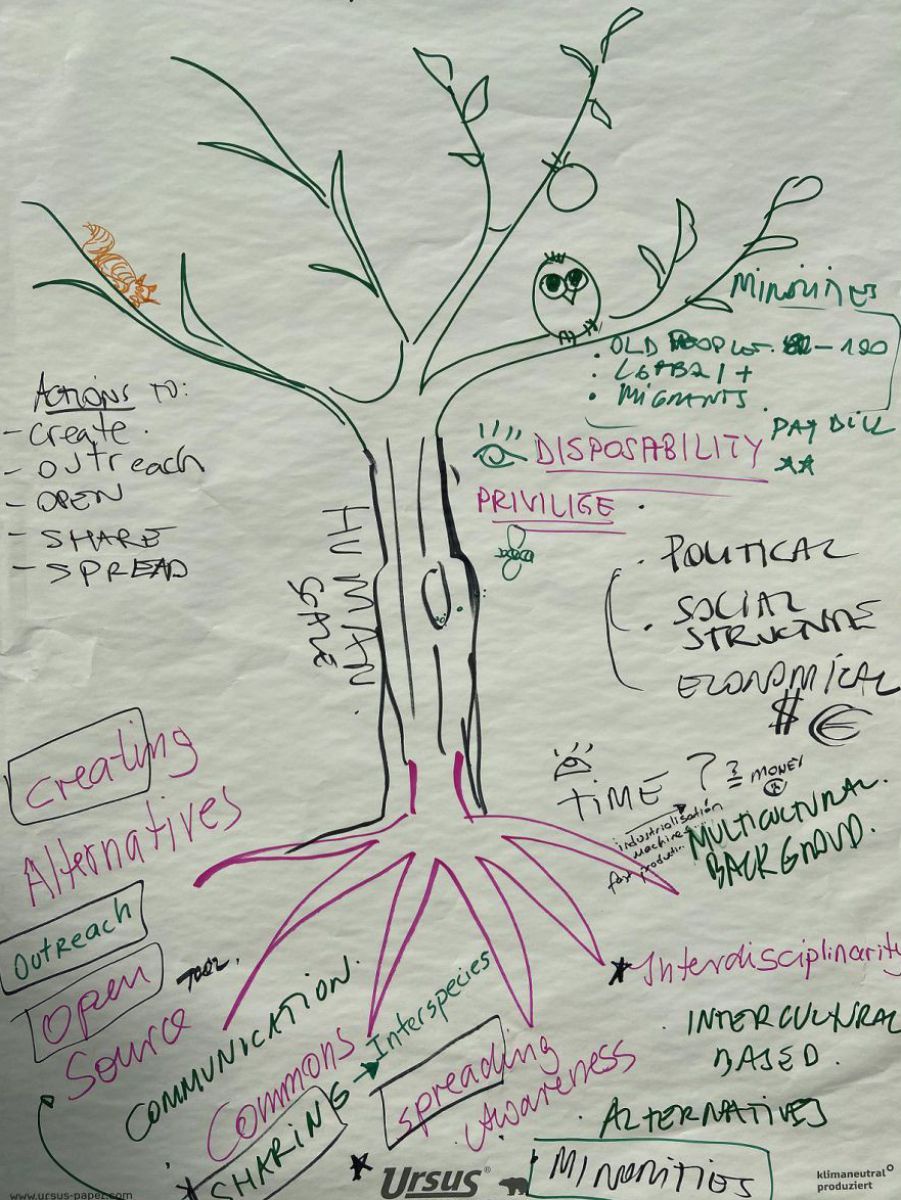 MINORITIES
• OLD PEOPLE. - 120
• LGTBQI+
• MIGRANTS.
PAY BILL
DISPOSABILITY
PRIVILIGE.
ACTIONS TO:
- create.
- outreach
- OPEN
- SHARE
- SPREAD
HUMAN
SCALE
• POLITICAL
• SOCIAL
STRUCTURE
ECONOMICAL
$ €
TIME ? = MONEY
industrialisation
machines
for production
MULTICULTURAL.
BACKGROUD.
creating
Alternatives
Outreach
Open
Source
TOOL.
COMMUNICATION.
Commons
SHARING → Interspecies
spreading
Awareness
★ Interdisciplinarity
• INTERCULTURAL
BASED.
• ALTERNATIVES
MINORITIES
www.ursus-paper.com
Ursus®
klimaneutral
produziert